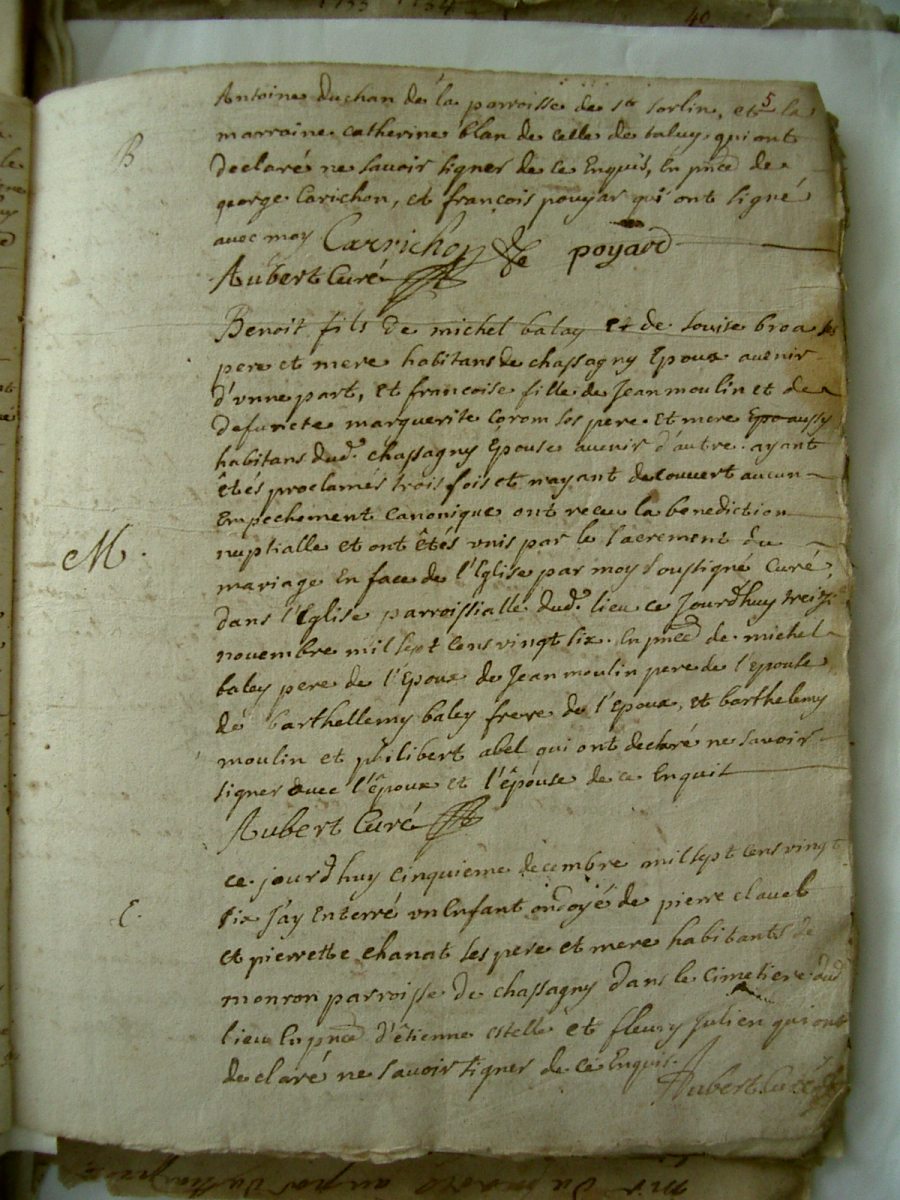 40
5
Antoine duchan de la parroisse de st sorlin, et la
B
marraine catherine blan de celle de taluy qui ont
declaré ne savoir signer de ce Enquis, En pnce de
george Carichon, et françois pouyar qui ont signé
avec moy Carrichon poyard
Aubert Curé
Benoit fils de michel balay et de Louise broa ses
pere et mere habitans de chassagny Epoux avenir
d'vnne part, et francoise fille de Jean moulin et de
defuncte marguerite Corom ses pere et mere Epo aussy
habitans dud. chassagny Epouse avenir d'autre. ayant
êtés proclamés trois fois et nayant decouvert aucun
Empechement canonique ont receu la benediction
M.
nuptialle et ont êtés vnis par le sacrement du
mariage En face de l'Eglise par moy soussigné Curé,
dans l'Eglise parroissialle dud. lieu ce Jourdhuy treize
novembre mil sept cens vingt six. En pnce de michel
baley pere de l'Epoux de Jean moulin pere de l'epouse
de barthellemy baley frere de l'epoux, et barthelemy
moulin et philibert abel qui ont declaré ne savoir
signer avec l'êpoux et l'épouse de ce Enquis
Aubert Curé
ce jourdhuy cinquieme decembre mil sept cens vingt
E.
six J'ay Enterré vn Enfant ondoyé de pierre clavel
et pierrette chanat ses pere et mere habitants de
monron parroisse de chassagny dans le cimetiere dud
lieu En pnce d'êtienne estelle et fleury Julien qui ont
declaré ne savoir signer de ce Enquis.
Aubert Curé